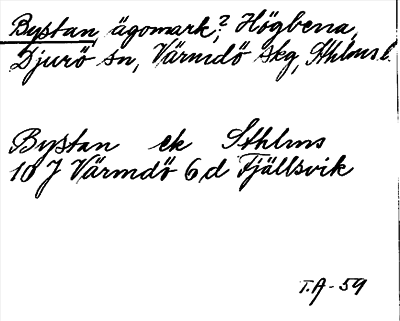 Bystan, ägomark?, Högbena,
Djurö sn, Värmdö skg, Sthlms l.
Bystan ek Sthlms
10 J Värmdö 6 d Fjällsvik
T.A - 59